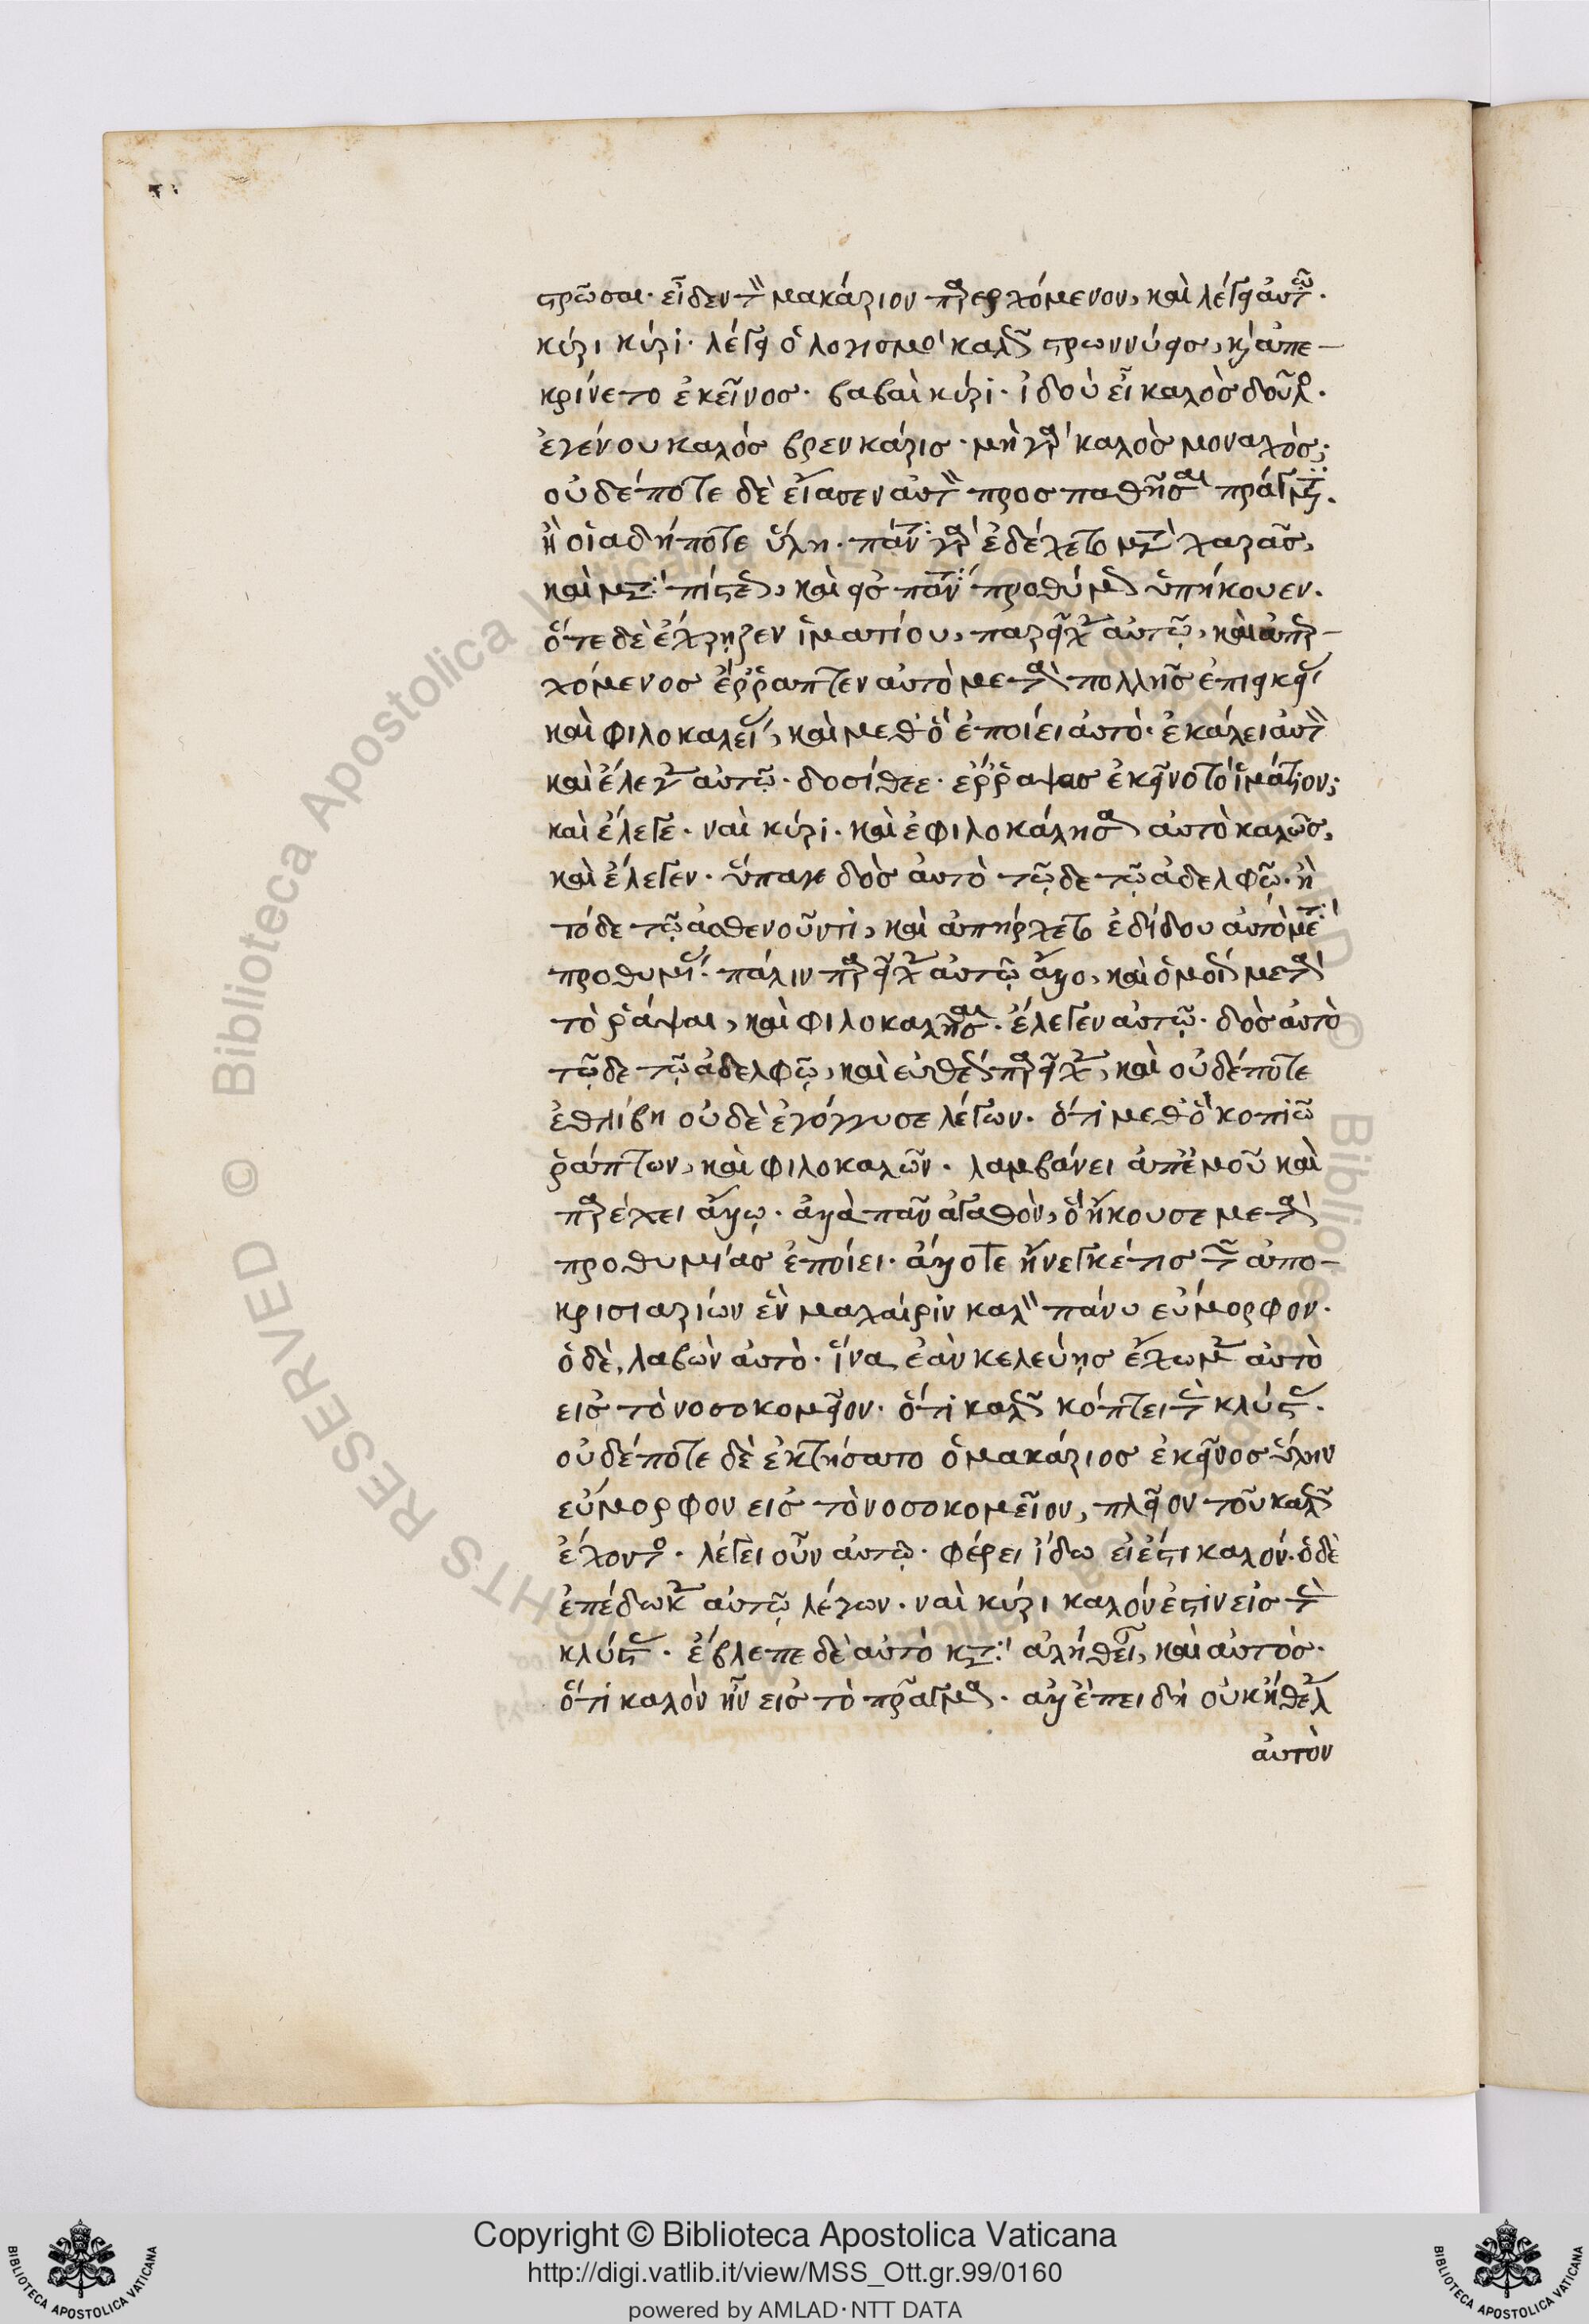 στρῶσαι· εἶδεν τὸν μακάριον παρερχόμενον, καὶ λέγει αὐτῷ·
κύρι κύρι· λέγει ὁ λογισμός καλῶς στρωννύεις, καὶ ἀπε-
κρίνετο ἐκεῖνος· βαβαὶ κύρι· ἰδοὺ εἶ καλὸς δοῦλος·
ἐγένου καλός βρενκάρις· μὴ γὰρ καλὸς μοναχὸς;
οὐδέποτε δὲ εἴασεν αὐτὸν προσπαθῆσαι πράγματι·
ἢ οἱαδήποτε ὕλη· πάντα γὰρ ἐδέχετο μετὰ χαρᾶς,
καὶ μετὰ πίστεως, καὶ εἰς πάντα προθύμως ὑπήκουεν·
ὅτε δὲ ἔχρηζεν ἱματίου, παρεῖχεν αὐτῷ, καὶ ἀπερ-
χόμενος ἔρραπτεν αὐτὸ μετὰ πολλῆς ἐπιεικείας
καὶ φιλοκαλείας, καὶ μεθ' ὃ ἐποίει αὐτὸ· ἐκάλει αὐτὸν
καὶ ἔλεγεν αὐτῷ· δοσίθεε· ἔρραψας ἐκεῖνο τὸ ἱμάτιον;
καὶ ἔλεγε· ναὶ κύρι· καὶ ἐφιλοκάλησα αὐτὸ καλῶς,
καὶ ἔλεγεν· ὕπαγε δὸς αὐτὸ τῷδε τῷ ἀδελφῷ· ἢ
τόδε τῷ ἀσθενοῦντι, καὶ ἀπήρχετο ἐδίδου αὐτὸ μετὰ
προθυμίας· πάλιν παρεῖχεν αὐτῷ ἄλλο, καὶ ὁμοίως μετὰ
τὸ ῥάψαι, καὶ φιλοκαλῆσαι· ἔλεγεν αὐτῷ· δὸς αὐτὸ
τῷδε τῷ ἀδελφῷ, καὶ εὐθέως παρεῖχεν, καὶ οὐδέποτε
ἐθλίβη οὐδὲ ἐγόγγυσε λέγων· ὅτι μεθ' ὃ κοπιῶ
ῥάπτων, καὶ φιλοκαλῶν· λαμβάνει ἀπ' ἐμοῦ καὶ
παρέχει ἄλλῳ· ἀλλὰ πᾶν ἀγαθὸν, ὃ ἤκουσε μετὰ
προθυμίας ἐποίει· ἄλλοτε ἤνεγκέ τις τῶν ἀπο-
κρισιαρίων ἓν μαχαίριν καλὸν πάνυ εὔμορφον·
ὁ δὲ, λαβὼν αὐτὸ· ἵνα, ἐὰν κελεύῃς ἔχωμεν αὐτὸ
εἰς τὸ νοσοκομεῖον· ὅτι καλῶς κόπτει τὰς κλύστας·
οὐδέποτε δὲ ἐκτήσατο ὁ μακάριος ἐκεῖνος ὕλην
εὔμορφον εἰς τὸ νοσοκομεῖον, πλεῖον τοῦ καλῶς
ἔχοντος· λέγει οὖν αὐτῷ· φέρει ἴδω εἰ ἔστι καλόν· ὁ δὲ
ἐπέδωκεν αὐτῷ λέγων· ναὶ κύρι καλόν ἐστιν εἰς τὰς
κλύστας· ἔβλεπε δὲ αὐτὸ κατὰ ἀλήθειαν, καὶ αὐτὸς·
ὅτι καλὸν ἦν εἰς τὸ πρᾶγμα· ἀλλ' ἐπειδὴ οὐκ ἤθελεν
αὐτὸν
Copyright © Biblioteca Apostolica Vaticana
http://digi.vatlib.it/view/MSS_Ott.gr.99/0160
powered by AMLAD·NTT DATA